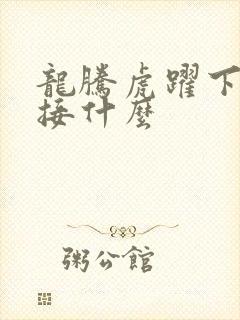 龍騰虎躍下
接什麼
粥公館